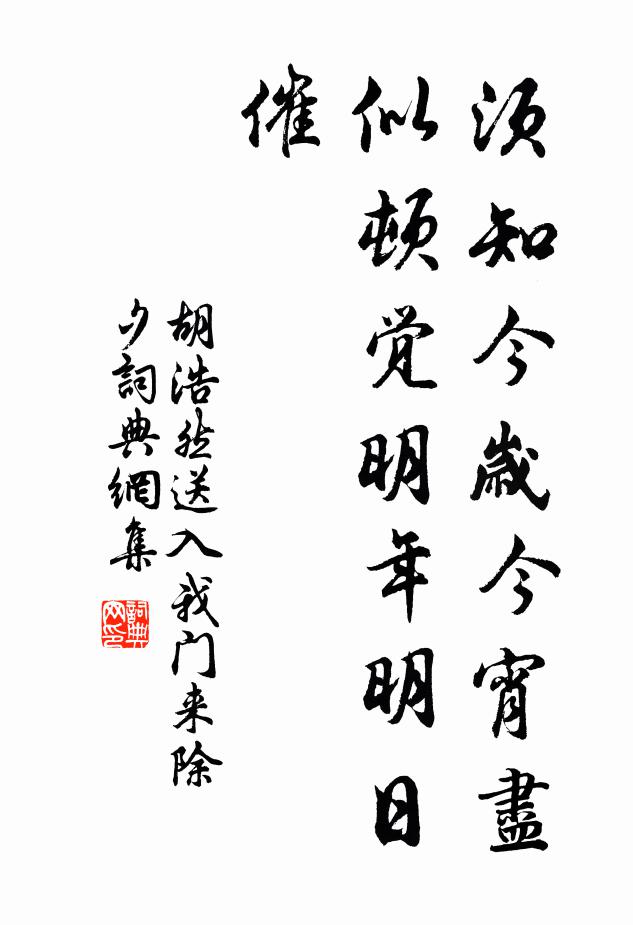 須知今歲今宵盡
似頓覚明年明日
催
胡浩然送入我門来除
夕詞典網集
詞典网印